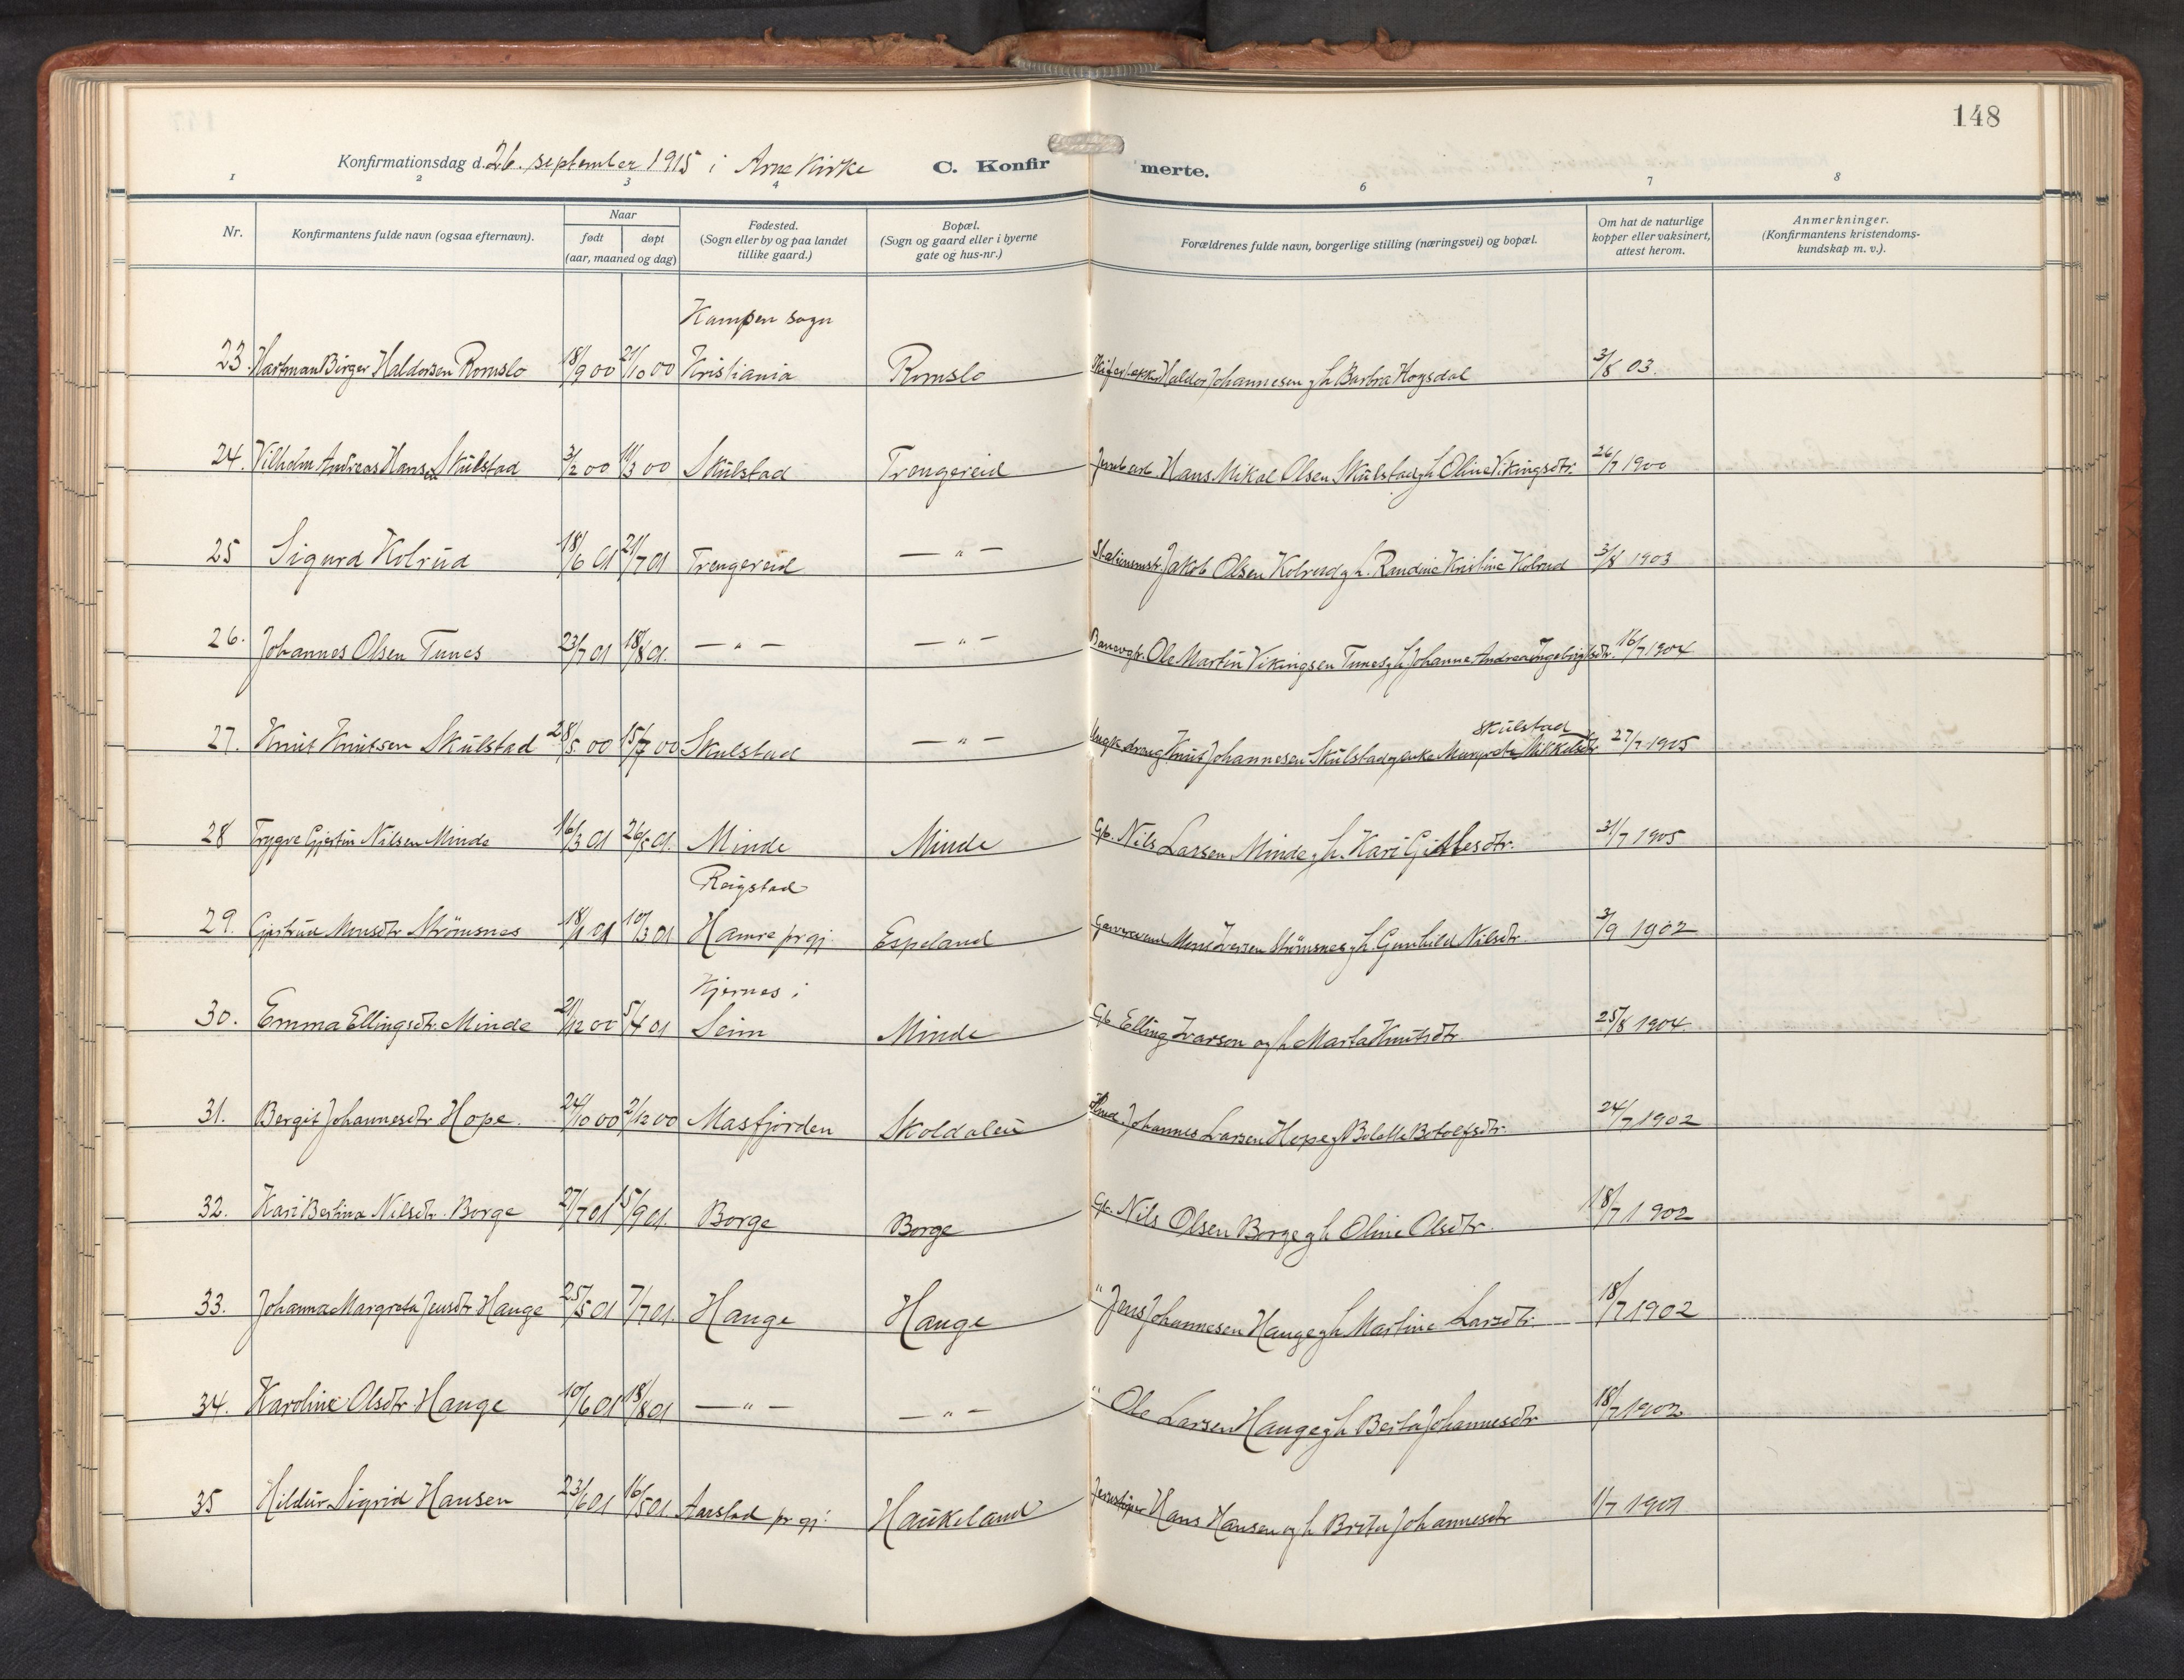 148
Konfirmationsdag d. 26. september 1915 i Arne Kirke C. Konfirmerte.
1 2 3 4 6 7 8
Nr. Konfirmantens fulde navn (ogsaa efternavn). Naar født døpt (aar, maaned og dag) Fødested. (Sogn eller by og paa landet tillike gaard.) Bopæl. (Sogn og gaard eller i byerne gate og hus-nr.) Forældrenes fulde navn, borgerlige stilling (næringsvei) og bopæl. Om hat de naturlige kopper eller vaksinert, attest herom. Anmerkninger. (Konfirmantens kristendomskundskap m. v.).
Kampen sogn
23. Hartman Birger Haldorsen Romslo 18/9 00 21/10 00 Kristiania Romslo Haldor Johannesen g h Barbra Hogsdal 3/8 03.
24. Vilhelm Andreas Hansen Skulstad 3/2 00 11/3 00 Skulstad Trengereid Jernb.arb. Hans Mikal Olsen Skulstad g h Oline Vikingsdtr. 26/7 1900
25 Sigurd Kolrud 18/6 01 21/7 01 Trengereid — " — Stationsmstr. Jakob Olsen Kolrud g h. Randine Kristine Kolrud 3/8 1903
26. Johannes Olsen Tunes 23/7 01 18/8 01. — " — — " — Banevgt. Ole Martin Vikingsen Tunes g h Johanne Andrea Ingebrigtsdtr. 16/7 1904
Skulstad
27. Knut Knutsen Skulstad 28/5 00 15/7 00 Skulstad — " — Ungk. dreng Knut Johannesen Skulstad g enke Margrete Mikkelsdtr. 27/7 1905
28 Trygve Gjertin Nilsen Minde 16/3 01 26/5 01. Minde Minde Gb. Nils Larsen Minde g h. Kari Gitlesdtr. 31/7 1905
Reigstad
29. Gjertrud Monsdtr Strömsnes 18/1 01 10/3 01 Hamre prgj. Espeland Mons Iversen Strömsnes g h. Gunhild Nilsdtr. 3/9 1902
Kjernes i
30. Emma Ellingsdtr. Minde 21/12 00 5/4 01 Seim Minde Gb Elling Ivarson og h Marta Knutsdtr. 25/8 1904.
31. Bergit Johannesdtr Hope. 24/10 00 2/12 00 Masfjorden Skoldalen Johannes Larsen Hope g Bolette Botolfsdtr. 24/7 1902
32. Kari Bertina Nilsdtr. Borge 27/7 01 15/9 01. Borge Borge Gb. Nils Olsen Borge g h Oline Olsdtr. 18/7 1902
33. Johanna Margreta Jensdtr Hauge 25/5 01 7/7 01. Hauge Hauge " Jens Johannesen Hauge g h Martine Larsdtr. 18/7 1902
34. Karoline Olsdtr. Hauge 10/6 01 18/8 01 — " — — " — " Ole Larsen Hauge g h Berta Johannesdtr 18/7 1902
35 Hildur Sigrid Hansen 23/6 01 16/5 01. Aarstad pr gj: Haukeland Hans Hansen og h Brita Johannesdtr 1/7 1901